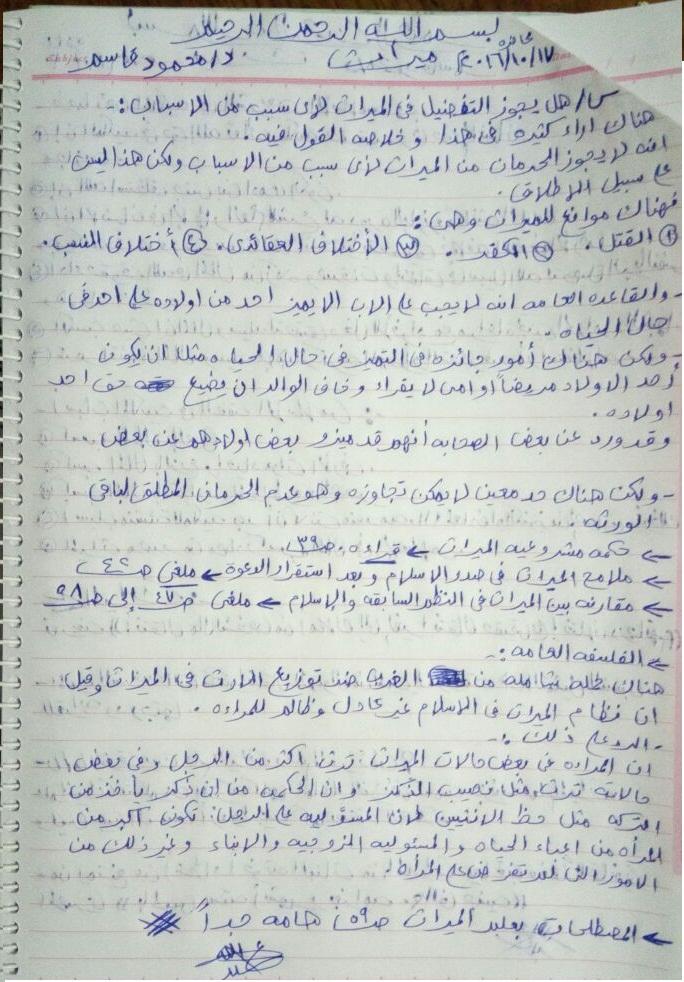 بسم الله الرحمن الرحيم
محاضرة ٢٠١٦/١٠/١٧م ميراث د/محمود قاسم
س/ هل يجوز التفضيل في الميراث لأى سبب من الاسباب :-
هناك اراء كثيره فى هذا وخلاصه القول فيه .
انه لا يجوز الحرمان من الميراث لأى سبب من الاسباب ولكن هذا ليس
على سبيل الاطلاق .
فهناك موانع للميراث وهى :-
① القتل . ② ③ الأختلاف العقائدى . ④ أختلاف
- والقاعده العامه انه لا يجب على الاب الا يميز احد من اولاده على احد فى
حال الحياه .
- ولكن هناك أمور جائزه فى التميز فى حال الحياه مثلا ان يكون
أحد الاولاد مريضاً او امى لا يقراء وخاف الوالد ان يضيع حق احد
اولاده .
وقد ورد عن بعض الصحابه أنهم قد ميزو بعض اولادهم عن بعض
- ولكن هناك حد معين لا يمكن تجاوزه وهو عدم الحرمان المطلق لباقى
الورثه
← حكمه مشروعيه الميراث ← قراءه . صـ٣٩
← ملامح الميراث فى صدر الاسلام وبعد استقرار الدعوة ← ملغى صـ٤٢
← مقارنه بين الميراث فى النظم السابقه والإسلام ← ملغى صـ٤٧ إلى صـ٥٨
← الفلسفه العامه :-
هناك من الغرب ضد توزيع الارث فى الميراث وقيل
ان نظام الميراث فى الاسلام غير عادل وظالم للمراءه .
- الرد على ذلك :-
ان المراءه فى بعض حالات الميراث ترث اكثر من الرجل وفى بعض
حالاته تراث مثل نصيب الذكر وان الحكمه من ان ذكر يأخذ من
التركه مثل حظ الانثيين لان المسؤليه على الرجل تكون أكبر من
المرأه من اعباء الحياه والمسئوليه الزوجيه والابناء وغير ذلك من
الامور التى لم تفرض على المرأه
← المصطلحات بعلم الميراث صـ٥٩ هامه جداً